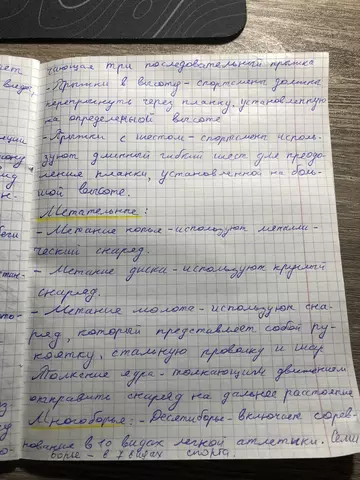 чающая три последовательный прыжка
- Прыжки в высоту - спортсмены должна
перепрыгнуть через планку, установленную
на определьной высоте
- Прыжки с шестом - спортсмен исполь-
зуют длинный гибкий шест для преодо-
ление планки, установленной на боль-
шой высоте.
Метательные:
- Метание копья - используют металли-
ческий снаряд.
- Метание диска - используют круглый
снаряд.
- Метание молота - используют сна-
ряд, который представляет собой ру-
коятку, стальную проволку и шар
Толкение ядра - толкающим движением
отправить снаряд на дальнее расстояние
Многоборья: - Десятиборье - включает сорев-
нование в 10 видах легкой атлетики. Семи
борье - в 7 видах спорта.